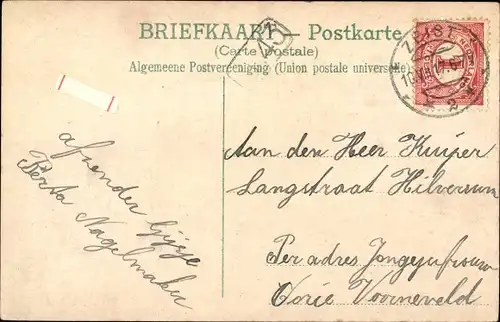 BRIEFKAART — Postkarte
(Carte postale)
Algemeene Postvereeniging (Union postale universelle)
45
ZEIST
NEDERLAND
1
2
afzender
Berta Nagelmaker
Aan den Heer Kuiper
Langstraat Hilversum
Per adres Jongejufrouw
Corie Voorneveld